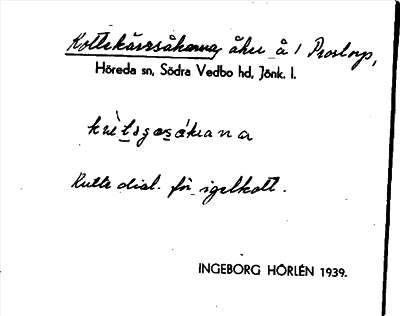 Kottskärrsåkerna, åker å 1 Prostorp,
Höreda sn, Södra Vedbo hd, Jönk. l.
Kutte dial. för igelkott.
INGEBORG HÖRLÉN 1939.